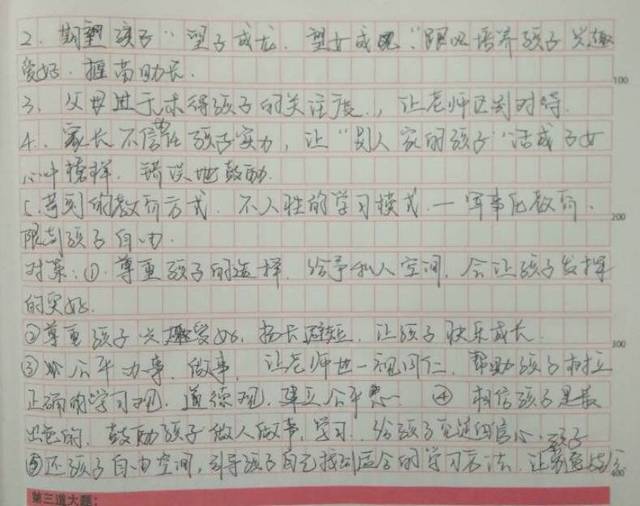 2. 期望孩子“望子成龙，望女成凤”，限以培养孩子兴趣
爱好，揠苗助长.
3. 父母过于求得孩子的关注度，让老师区别对待.
4. 家长不信任孩子实力，让“别人家的孩子”活成子女
心中榜样，错误地鼓励.
5. 苛刻的教育方式，不人性的学习模式，军事化教育，
限制孩子自由.
对策：①尊重孩子的选择，给予私人空间，会让孩子发挥
的更好.
②尊重孩子兴趣爱好，扬长避短，让孩子快乐成长.
③以公平办事，做事，让老师也一视同仁，帮助孩子树立
正确的学习观，道德观，建立公平 ④相信孩子是最
出色的，鼓励孩子做人做事，学习，给孩子 信心.孩子
⑤还孩子自由空间，引导孩子自己找到适合的学习方法，让
第三道大题：
100
200
300
400